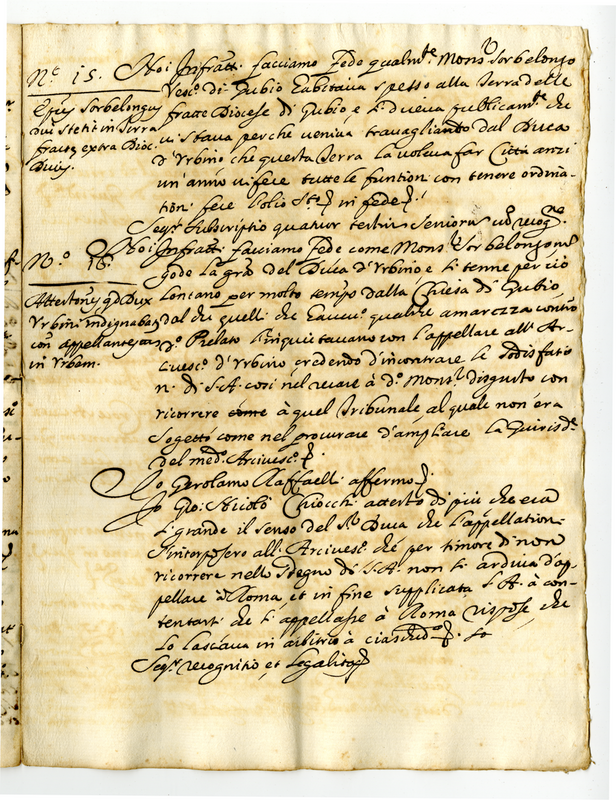 N.º 15. Noi Infratti facciamo Fede qualmte Monsr Sorbelongo
Vescº di Gubio habitava spesso alla Terra delle
fratte Diocese di Gubio e si diceva publicamte che
vi stava perche veniva travagliando dal Duca
d'Urbino che questa Terra la voleva far Città anzi
un'anno vi fece tutte le funtioni con tenere ordina-
tioni fece solio in fede
Epus Sorbelongus
diu stetit in Terra
fractar extra Dioc.
Seqr subscriptio quatuor testium
N.º 16. Noi Infratti facciamo Fede come Monsr Sorbelongo non
gode la gra del Duca d'Urbino e si tenne per ciò
lontano per molto tempo dalla Chiesa di Gubio
dal che quelli che havevo qualche amarezza contro
dº Prelato l'inquietavano con l'appellare all'Ar-
civescº d'Urbino credendo d'incontrare le sodisfatio
ni di S.A. cosi nel recare à dº Monsr disgusto con
ricorrere come à quel Tribunale al quale non era
sogetto come nel procurare d'ampliare la Giurisdne
del medº Arcivescº
Attestatur qd Dux
Urbini indignabat
con appellantes
in Urbem.
Io Gerolamo Raffaelli affermo
Io Gio: Nicolò Chiocchi attesto di più che era
si grande il senso del Sr Duca che l'appellationi
s'interposero all'Arcivescº che per timore di non
ricorrere nello sdegno di S.A. non si ardiva d'ap-
pellare à Roma, et in fine supplicata S.A. à con-
tentarsi che si appellasse à Roma rispose che
lo lasciava in arbitrio à ciascheduno
Seqr recognitio et legalitas